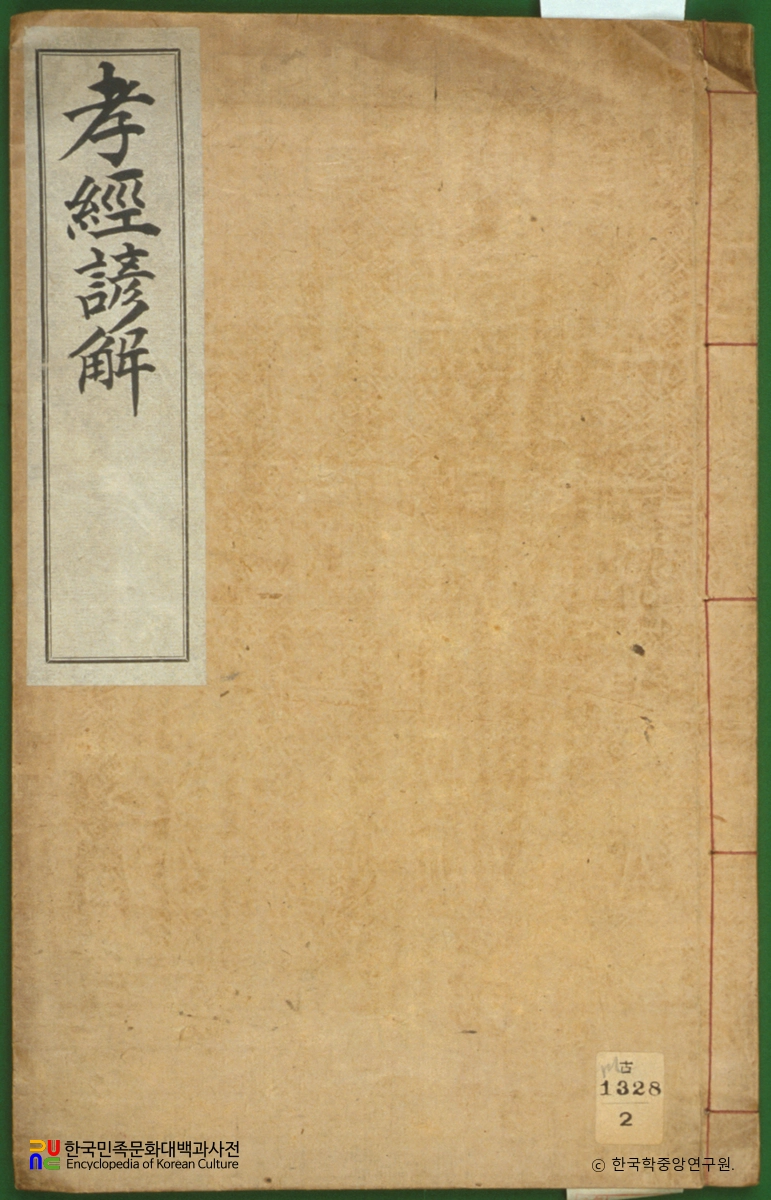 孝經諺解
古
1328
2
한국민족문화대백과사전
Encyclopedia of Korean Culture
© 한국학중앙연구원.